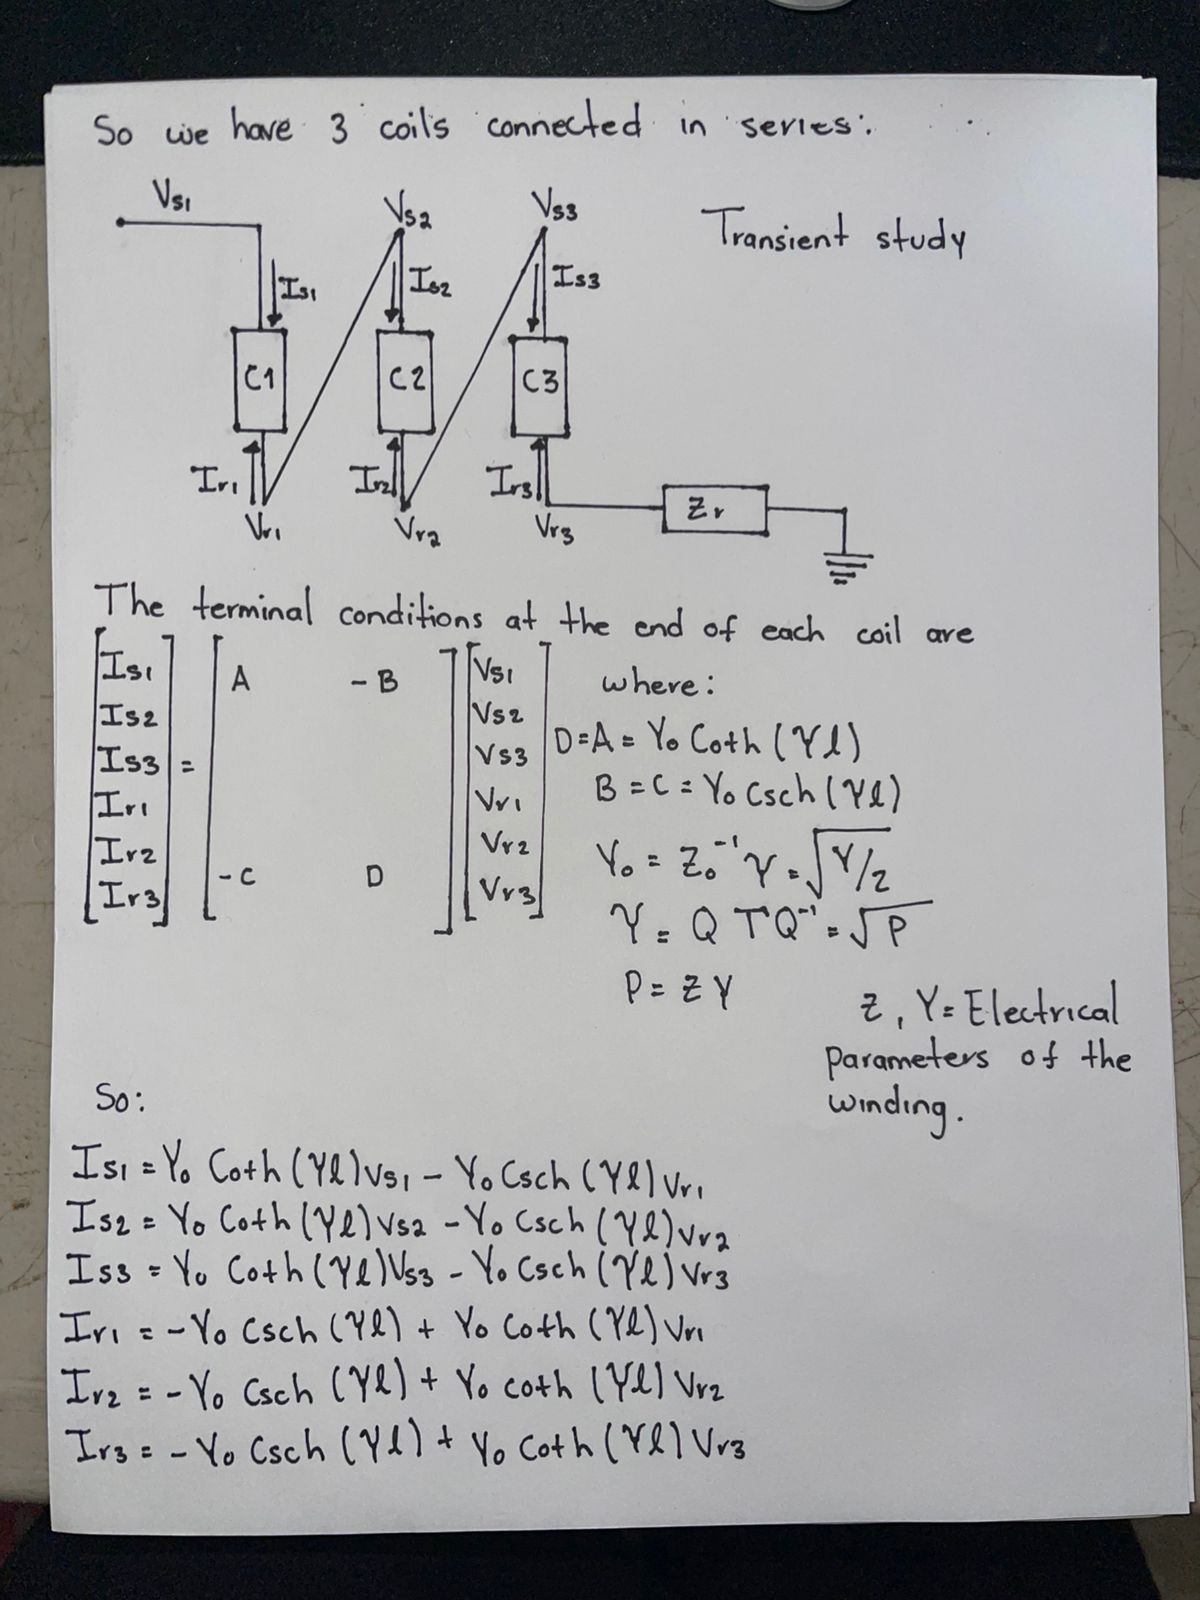 So we have 3 coils connected in series:
Vs1
Vs2
Vs3
Transient study
Is1
Is2
Is3
C1
C2
C3
Ir1
Ir2
Ir3
Zr
Vr1
Vr2
Vr3
The terminal conditions at the end of each coil are
[Is1 Is2 Is3 Ir1 Ir2 Ir3] = [A -B -C D] [Vs1 Vs2 Vs3 Vr1 Vr2 Vr3]
where:
D=A= Y0 Coth (γl)
B = C = Y0 Csch (γl)
Y0 = Z0⁻¹ γ = √Y/Z
γ = Q Γ Q⁻¹ = √P
P = Z Y
Z, Y= Electrical
parameters of the
winding.
So:
Is1 = Y0 Coth (γl) Vs1 - Y0 Csch (γl) Vr1
Is2 = Y0 Coth (γl) Vs2 - Y0 Csch (γl) Vr2
Is3 = Y0 Coth (γl) Vs3 - Y0 Csch (γl) Vr3
Ir1 = - Y0 Csch (γl) + Y0 Coth (γl) Vr1
Ir2 = - Y0 Csch (γl) + Y0 coth (γl) Vr2
Ir3 = - Y0 Csch (γl) + Y0 Coth (γl) Vr3